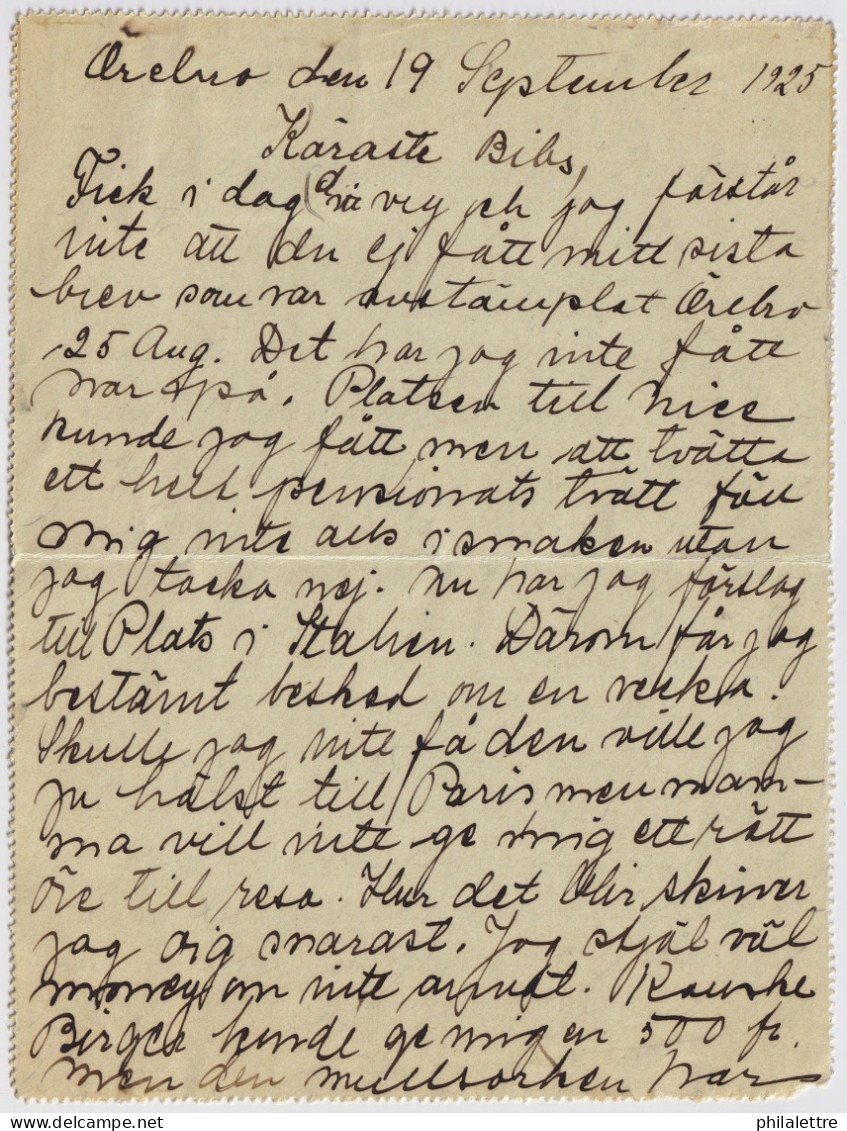 Örebro den 19 September 1925
Käraste Bibs,
Fick i dag och jag förstår
inte att du ej fått mitt sista
brev som var avstämplat Örebro
25 Aug. Det har jag inte fått
svar på. Platsen till Nice
kunde jag fått men att tvätta
ett helt pensionats tvätt föll
mig inte alls i smaken utan
jag tacka nej. Nu har jag förslag
till Plats i Italien. Därom får jag
bestämt besked om en vecka.
Skulle jag inte få den ville jag
ju hälst till Paris men mam-
ma vill inte ge mig ett rött
öre till resa. Hur det blir, skriver
jag dig snarast. Jag stjäl väl
money om inte annat. Kanske
Birger kunde ge mig en 500 fr.
men den mullsorken har
philalettre